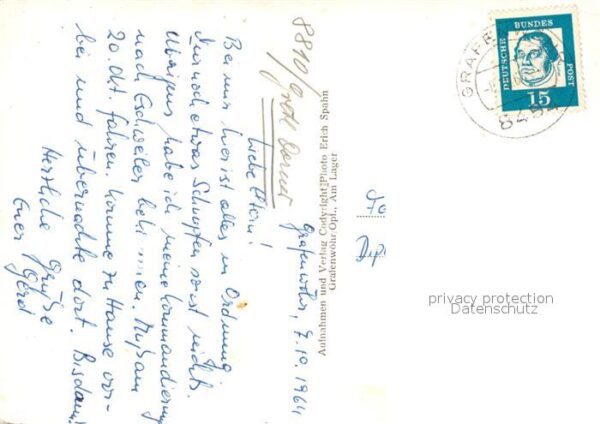 Grafenwöhr, 7.10.1964
Liebe Eltern!
Bei mir hier ist alles in Ordnung
nur noch etwas Schnupfen sonst nichts.
Übrigens habe ich meine Kommandierung
nach Eschweiler bekommen. Muß am
20. Okt. fahren. Komme zu Hause vor-
bei und übernachte dort. Bis dann!
Herzliche Grüße
Euer Gerd
8810/
Aufnahmen und Verlag Codyright]Photo Erich Spahn
Grafenwöhr/Opf., Am Lager
DEUTSCHE BUNDESPOST
15
GRAFE
8484
Dipl
privacy protection
Datenschutz